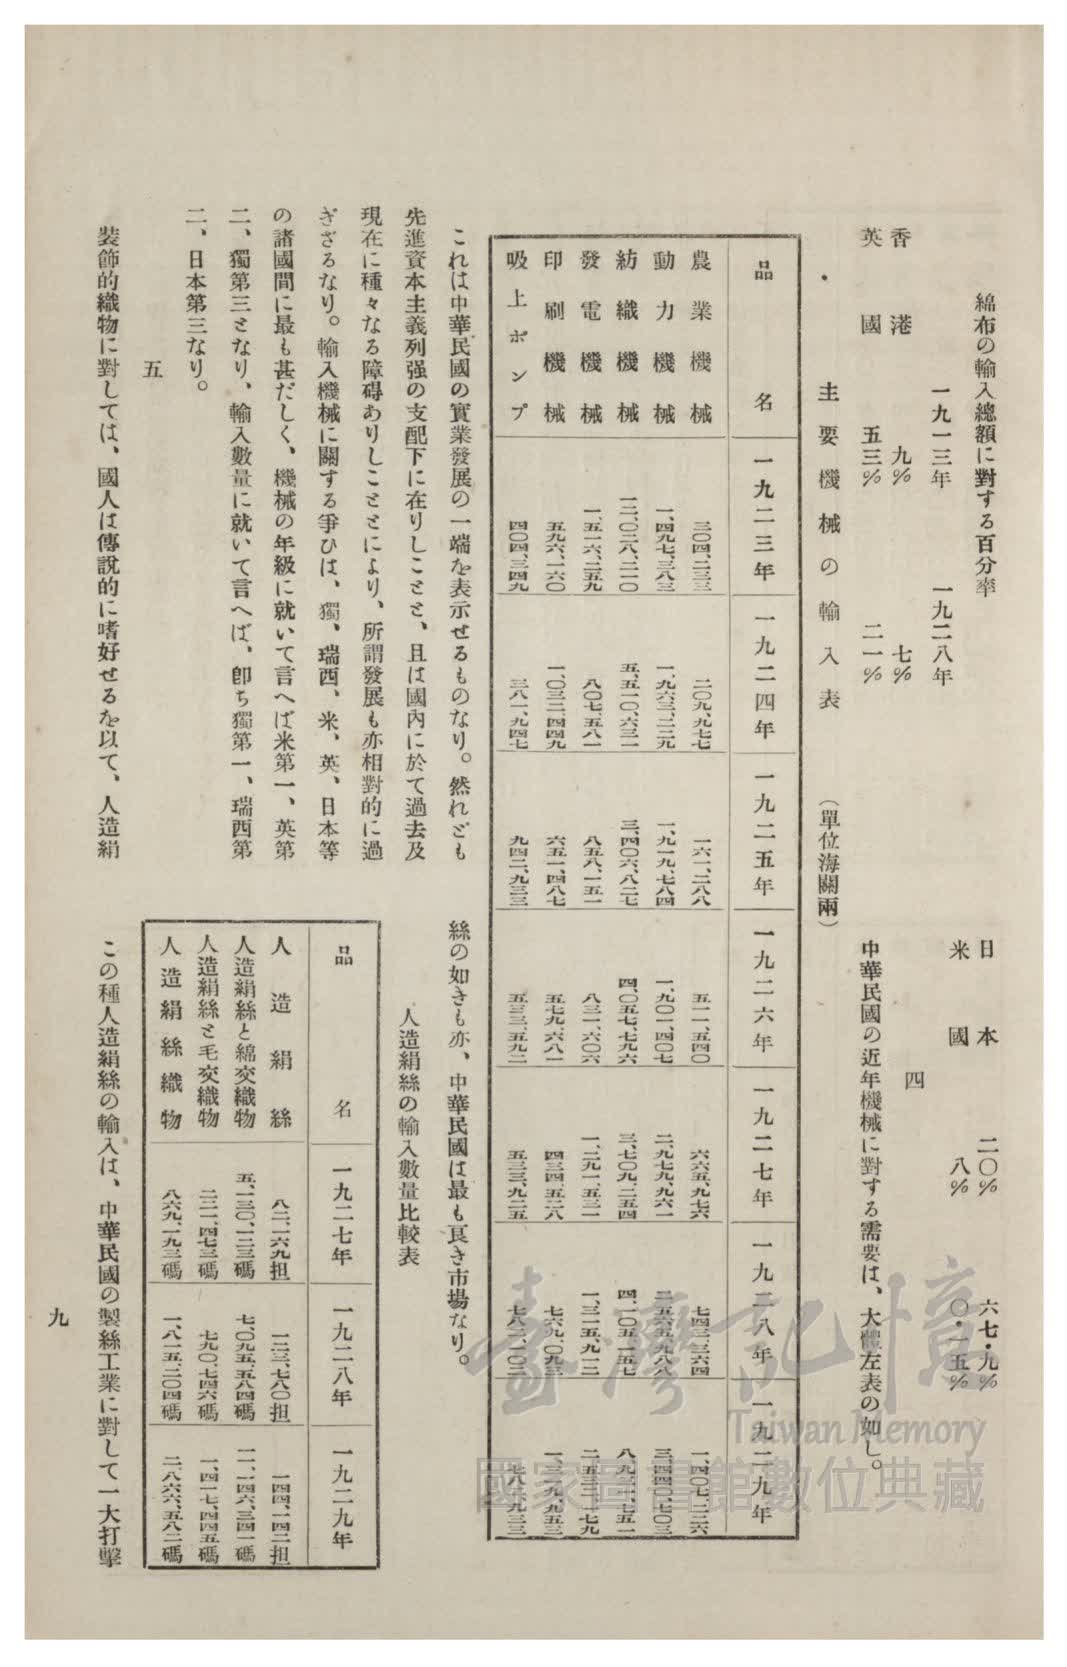 綿布の輸入總額に對する百分率
一九一三年　一九二八年
香港　九%　七%
英國　五三%　二一%
日本　二〇%　六七・九%
米國　八%　〇・一五%
四
中華民國の近年機械に對する需要は、大體左表の如し。
主要機械の輸入表　（單位海關兩）
品名　一九二三年　一九二四年　一九二五年　一九二六年　一九二七年　一九二八年　一九二九年
農業機械　三〇四、二三三　二〇九、九七七　一六一、二八八　五一一、五四〇　六六五、九七六　七四三、三六四　一、四〇七、二二六
動力機械　一、四九七、三八三　一、九六三、二二九　一、九一九、七八四　一、九〇一、四〇七　二、九七九、九六一　二、五六五、九八八　三、四四〇、七〇三
紡織機械　一二、〇二八、二一〇　五、五一〇、六三一　三、四〇六、八二七　四、〇五七、七九六　三、七〇九、二五四　四、一〇五、一五七
發電機械　一、五一六、二五九　八〇七、五八一　八五八、一五一　八三一、六〇六　一、二九一、五三一　一、三一五、九一二
印刷機械　五九六、一六〇　一、〇三二、四四九　六五一、四八七　五七九、六八一　四三四、五二八　七六九、〇九三
吸上ポンプ　四〇四、三四九　三八一、九四七　九四二、九三三　五三三、五九二　五三三、九二五　七八二、一〇三
これは中華民國の實業發展の一端を表示せるものなり。然れども
先進資本主義列强の支配下に在りしことと、且は國內に於て過去及
現在に種々なる障碍ありしこととにより、所謂發展も亦相對的に過
ぎざるなり。輸入機械に關する爭ひは、獨、瑞西、米、英、日本等
の諸國間に最も甚だしく、機械の年級に就いて言へば米第一、英第
二、獨第三となり、輸入數量に就いて言へば、卽ち獨第一、瑞西第
二、日本第三なり。
五
裝飾的織物に對しては、國人は傳說的に嗜好せるを以て、人造絹
絲の如きも亦、中華民國は最も良き市場なり。
人造絹絲の輸入數量比較表
品名　一九二七年　一九二八年　一九二九年
人造絹絲　八二、一六九担　一二三、七八〇担　一四四、一四二担
人造絹絲と綿交織物　五、一三〇、一二三碼　七、〇九五、五八四碼　一一、一四六、三四一碼
人造絹絲と毛交織物　二二一、四七三碼　七九〇、七四六碼　一、四一七、四四五碼
人造絹絲織物　八六九、一九三碼　一、八一五、二〇四碼　二、八六六、五八二碼
この種人造絹絲の輸入は、中華民國の製絲工業に對して一大打擊
九
臺灣記憶
Taiwan Memory
國家圖書館數位典藏